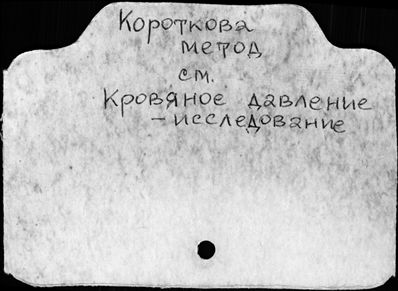 Короткова
метод
см.
Кровяное давление
– исследование